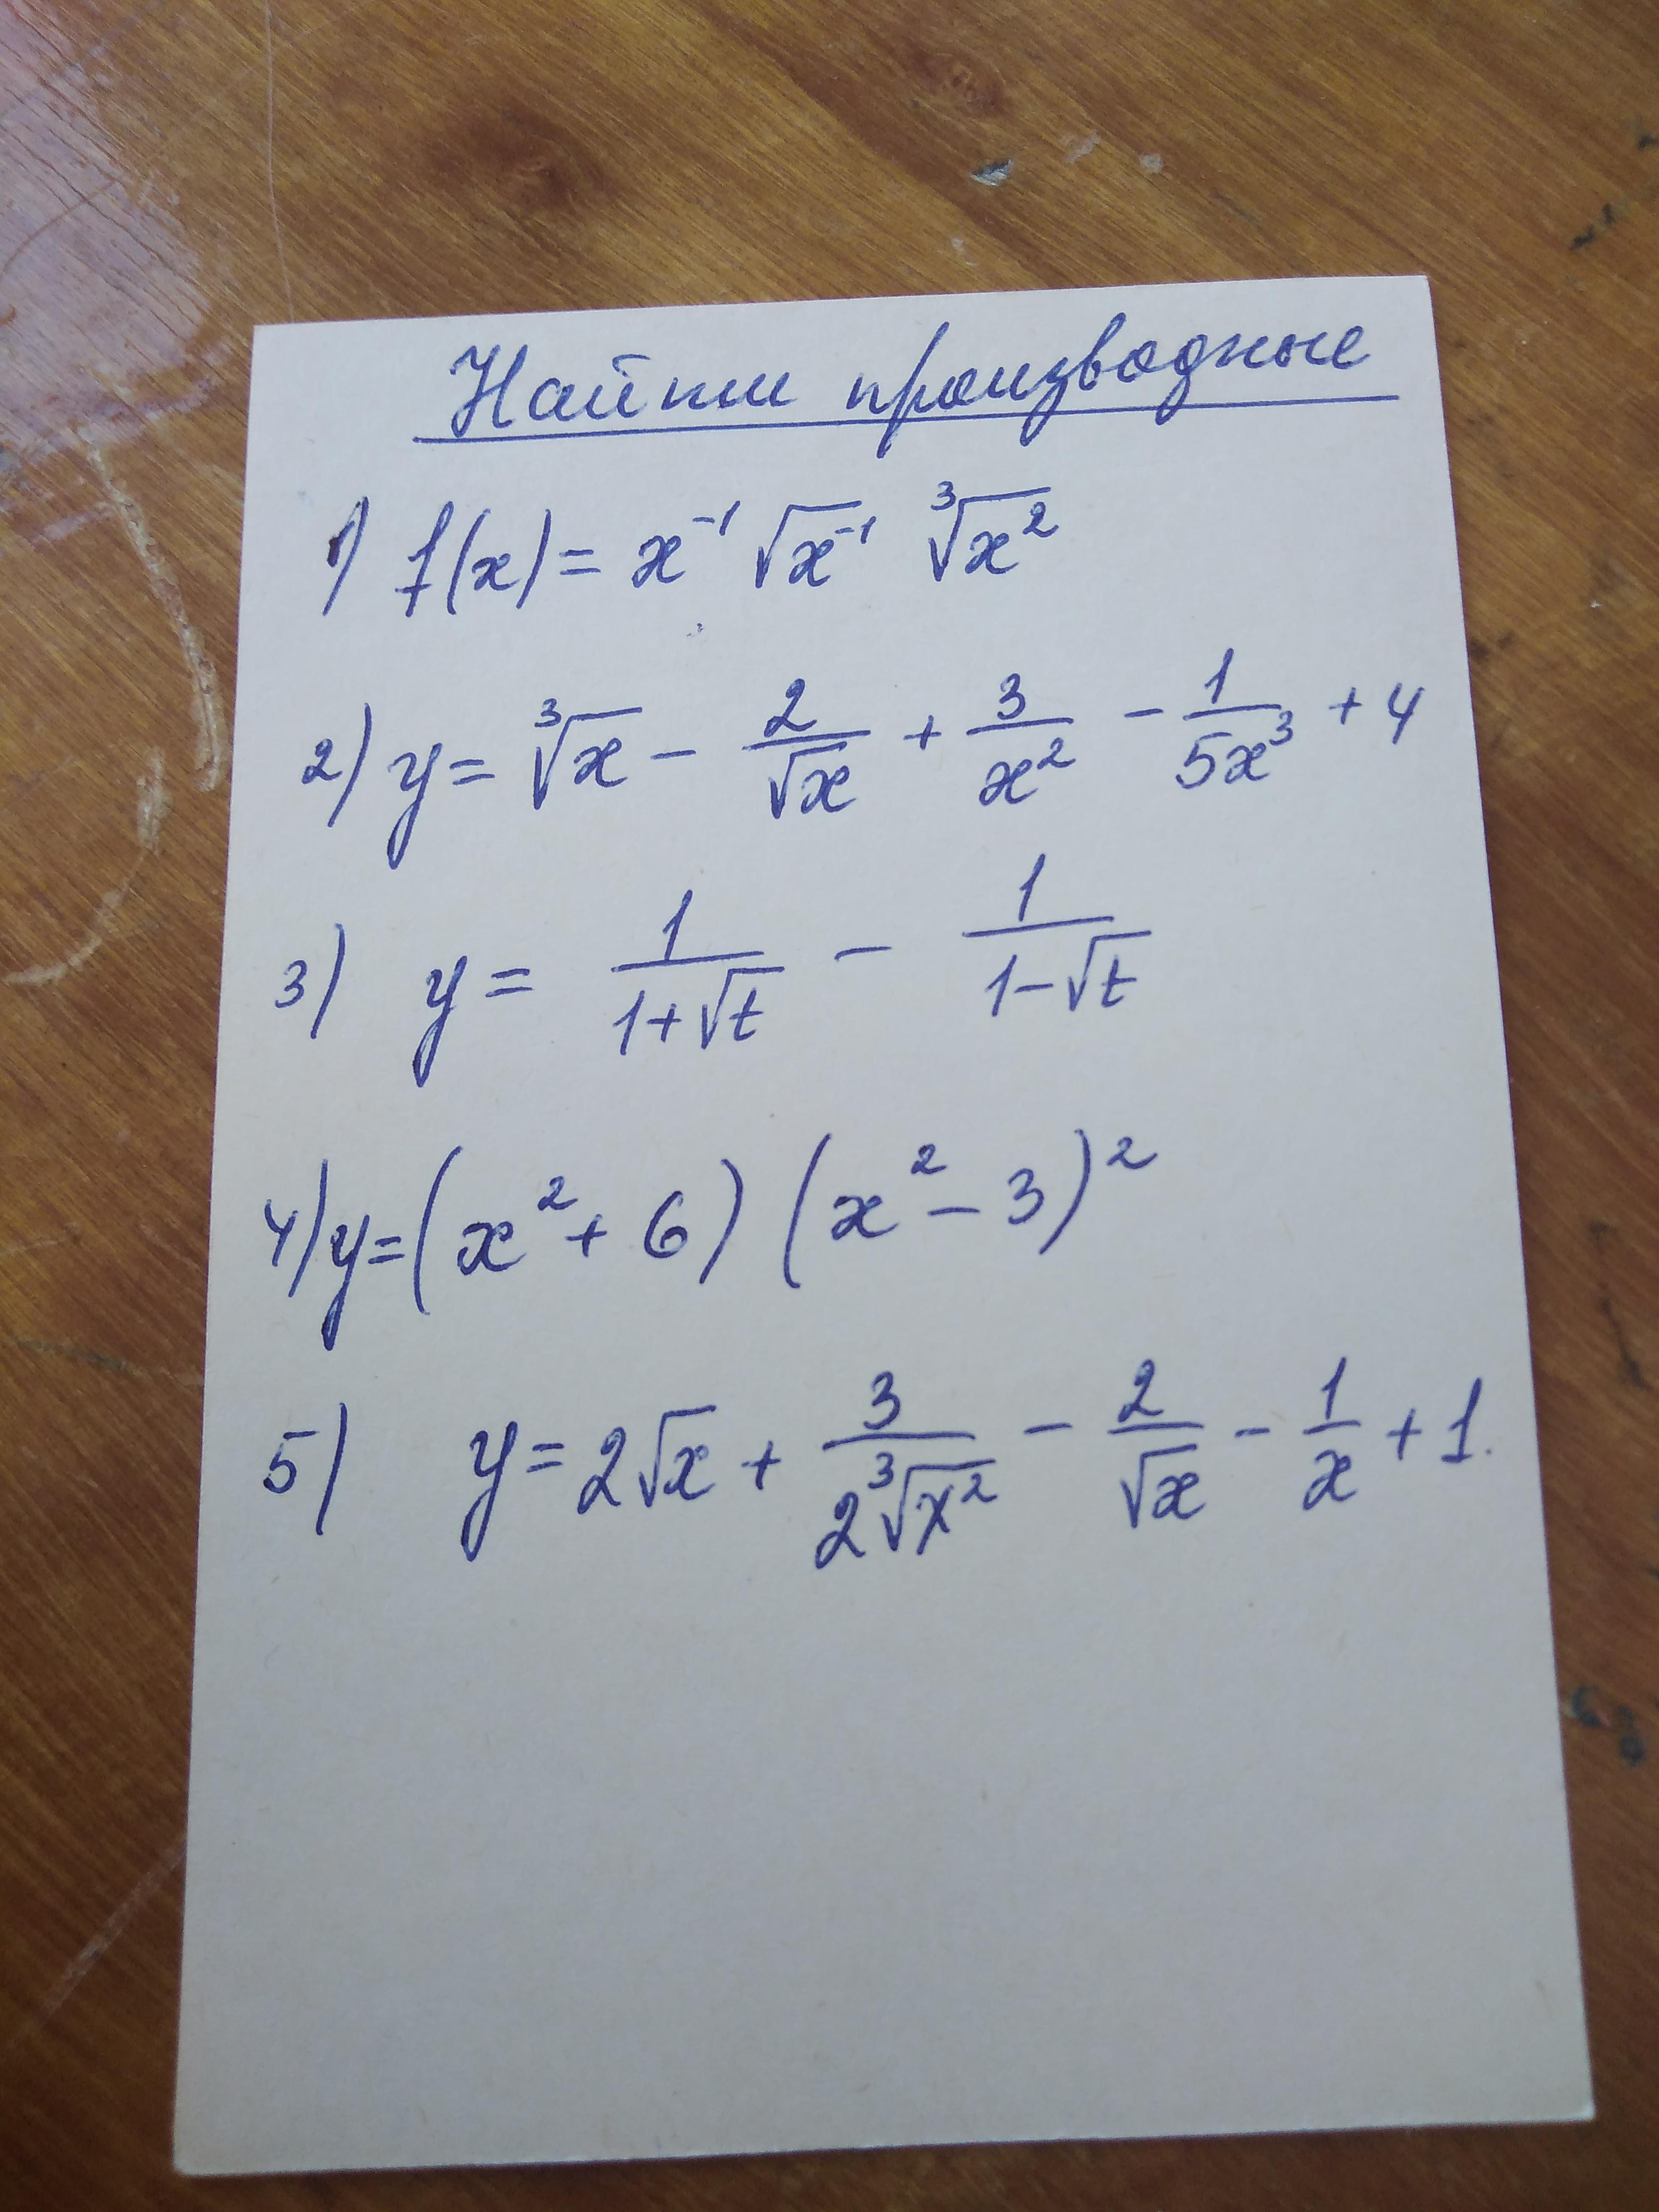 Найти производные
1) f(x) = x⁻¹ √x⁻¹ ³√x²
2) y = ³√x − 2/√x + 3/x² − 1/5x³ + 4
3) y = 1/(1+√t) − 1/(1−√t)
4) y = (x² + 6) (x² − 3)²
5) y = 2√x + 3/2³√x² − 2/√x − 1/x + 1.